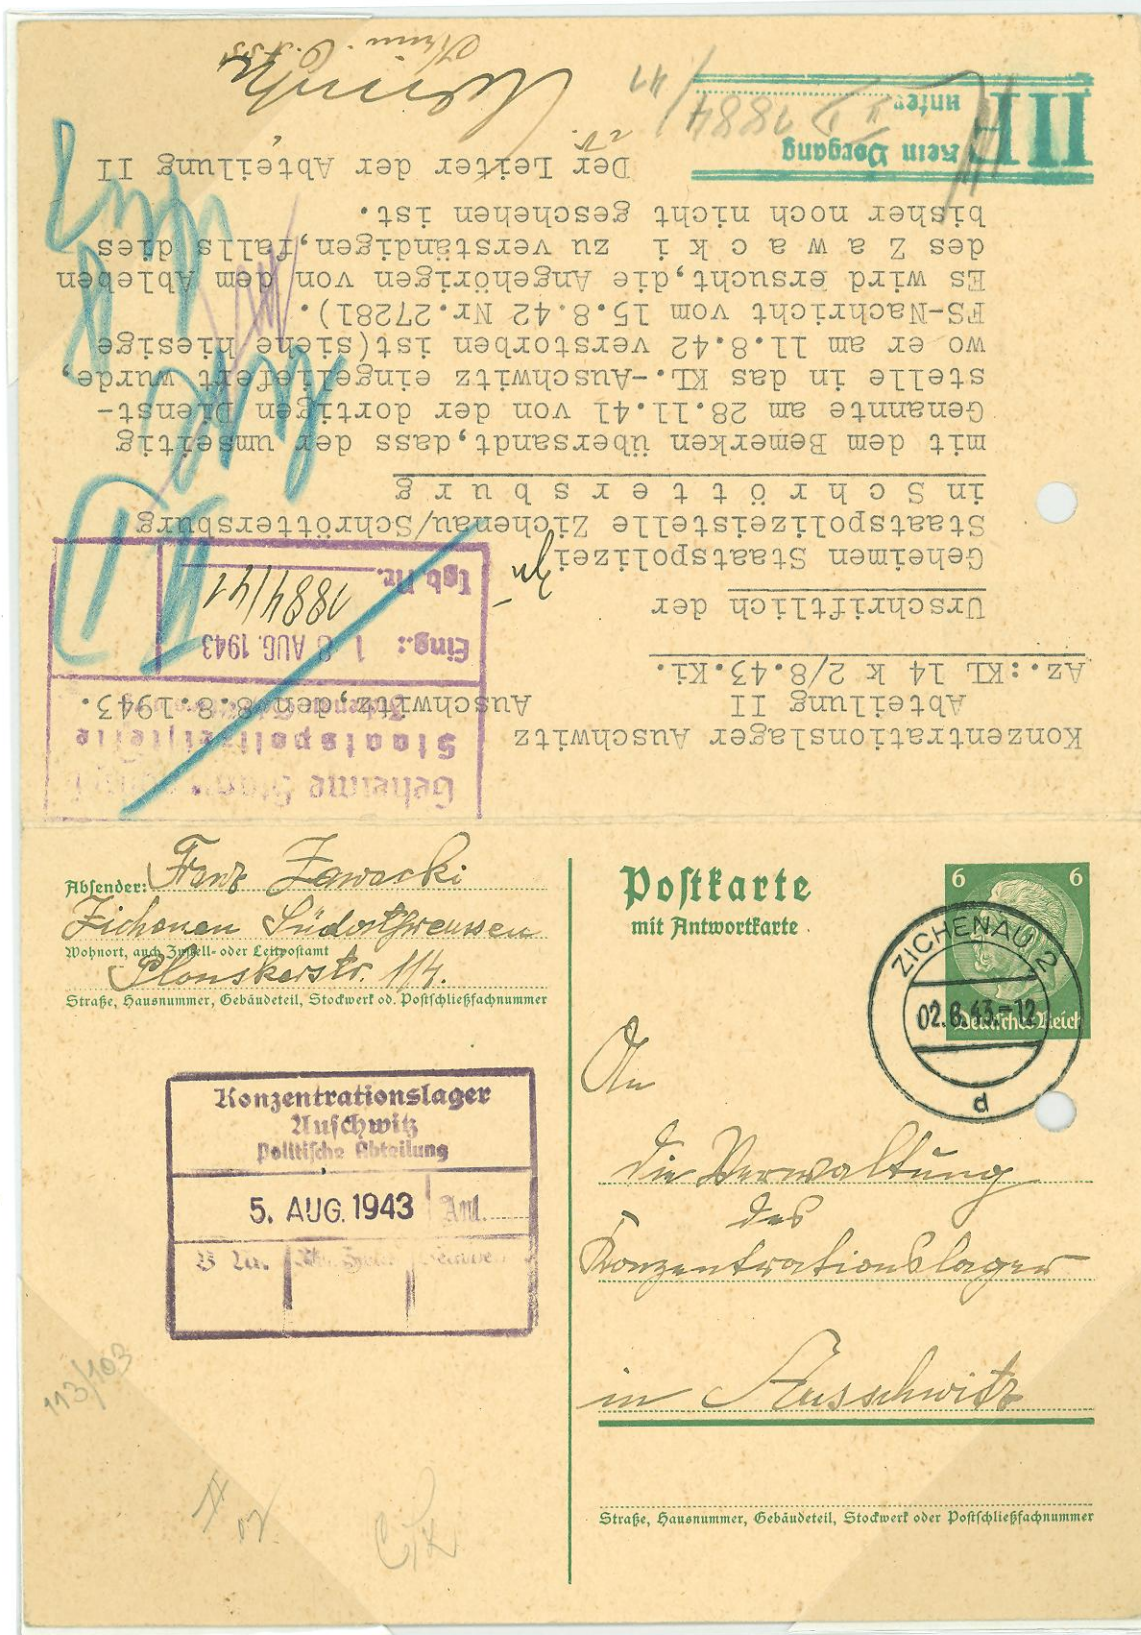 Konzentrationslager Auschwitz
Abteilung II
Az.: KL 14 k 2/8.43.Ki.
Auschwitz, den 8.8.1943.
Geheime
Staatspolizeistelle
Eing.: 1 8 AUG. 1943
Tgb.Nr. 1884/41
Urschriftlich der
Geheimen Staatspolizei
Staatspolizeistelle Zichenau/Schröttersburg
in S c h r ö t t e r s b u r g
mit dem Bemerken übersandt, dass der umseitig
Genannte am 28.11.41 von der dortigen Dienst-
stelle in das KL.-Auschwitz eingeliefert wurde,
wo er am 11.8.42 verstorben ist(siehe hiesige
FS-Nachricht vom 15.8.42 Nr.27281).
Es wird ersucht, die Angehörigen von dem Ableben
des Z a w a c k i zu verständigen, falls dies
bisher noch nicht geschehen ist.
Der Leiter der Abteilung II
i.V.
Krim.
Kein Vorgang
unter
II F
II D 1884/41
Absender: Franz Zawacki
Zichenau Südostpreussen
Wohnort, auch Zustell- oder Leitpostamt
Plonskerstr. 114.
Straße, Hausnummer, Gebäudeteil, Stockwerk od. Postschließfachnummer
Konzentrationslager
Auschwitz
Politische Abteilung
5. AUG. 1943 Anl.
113/103
Postkarte
mit Antwortkarte
6 6
Deutsches Reich
ZICHENAU 2
02.8.43-12
d
An
die Verwaltung
des
Konzentrationslager
in Ausschwitz
Straße, Hausnummer, Gebäudeteil, Stockwerk oder Postschließfachnummer